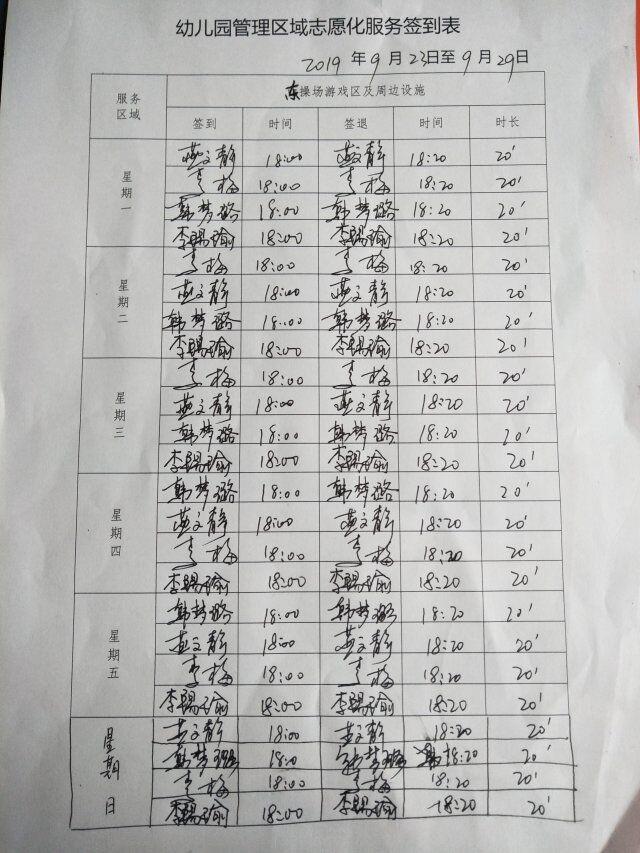 幼儿园管理区域志愿化服务签到表
2019 年 9 月 23日至 9 月 29日
服务区域 东操场游戏区及周边设施
签到 时间 签退 时间 时长
星期一
燕文静 18:00 燕文静 18:20 20'
李梅 18:00 李梅 18:20 20'
韩梦璐 18:00 韩梦璐 18:20 20'
李赐瑜 18:00 李赐瑜 18:20 20'
星期二
李梅 18:00 李梅 18:20 20'
燕文静 18:00 燕文静 18:20 20'
韩梦璐 18:00 韩梦璐 18:20 20'
李赐瑜 18:00 李赐瑜 18:20 20'
星期三
李梅 18:00 李梅 18:20 20'
燕文静 18:00 燕文静 18:20 20'
韩梦璐 18:00 韩梦璐 18:20 20'
李赐瑜 18:00 李赐瑜 18:20 20'
星期四
韩梦璐 18:00 韩梦璐 18:20 20'
燕文静 18:00 燕文静 18:20 20'
李梅 18:00 李梅 18:20 20'
李赐瑜 18:00 李赐瑜 18:20 20'
星期五
韩梦璐 18:00 韩梦璐 18:20 20'
燕文静 18:00 燕文静 18:20 20'
李梅 18:00 李梅 18:20 20'
李赐瑜 18:00 李赐瑜 18:20 20'
星期日
燕文静 18:00 燕文静 18:20 20'
韩梦璐 18:0 韩梦璐 18:20 20'
李梅 18:00 李梅 18:20 20'
李赐瑜 18:00 李赐瑜 18:20 20'